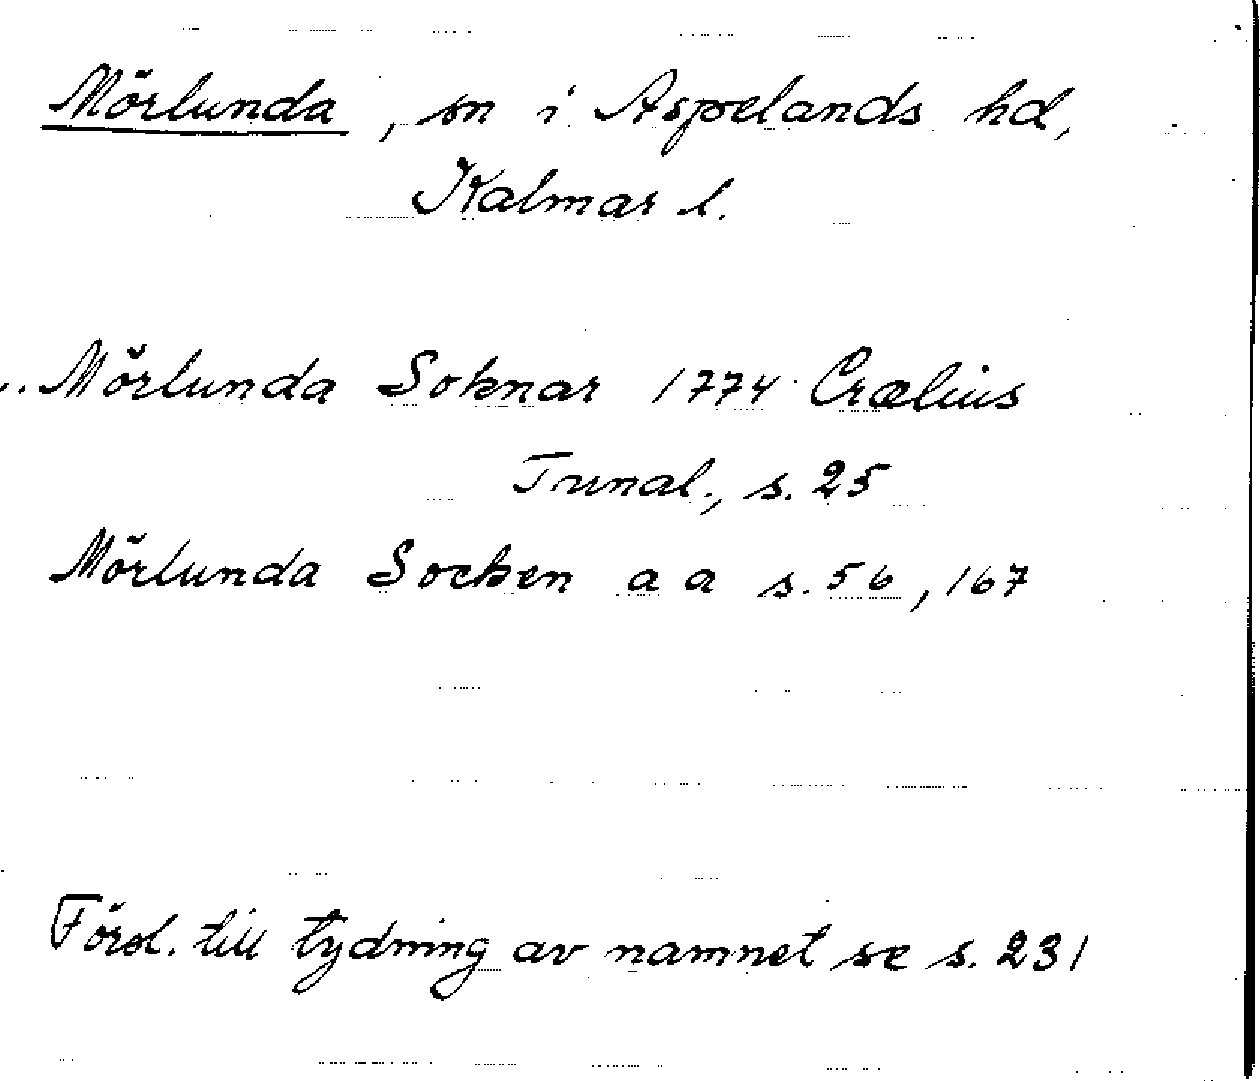 Mörlunda, sn i Aspelands hd,
Kalmar l.
.. Mörlunda Soknar 1774 Crælius
Tunal., s. 25
Mörlunda Socken a a s. 56, 167
Försl. till tydning av namnet se s. 231